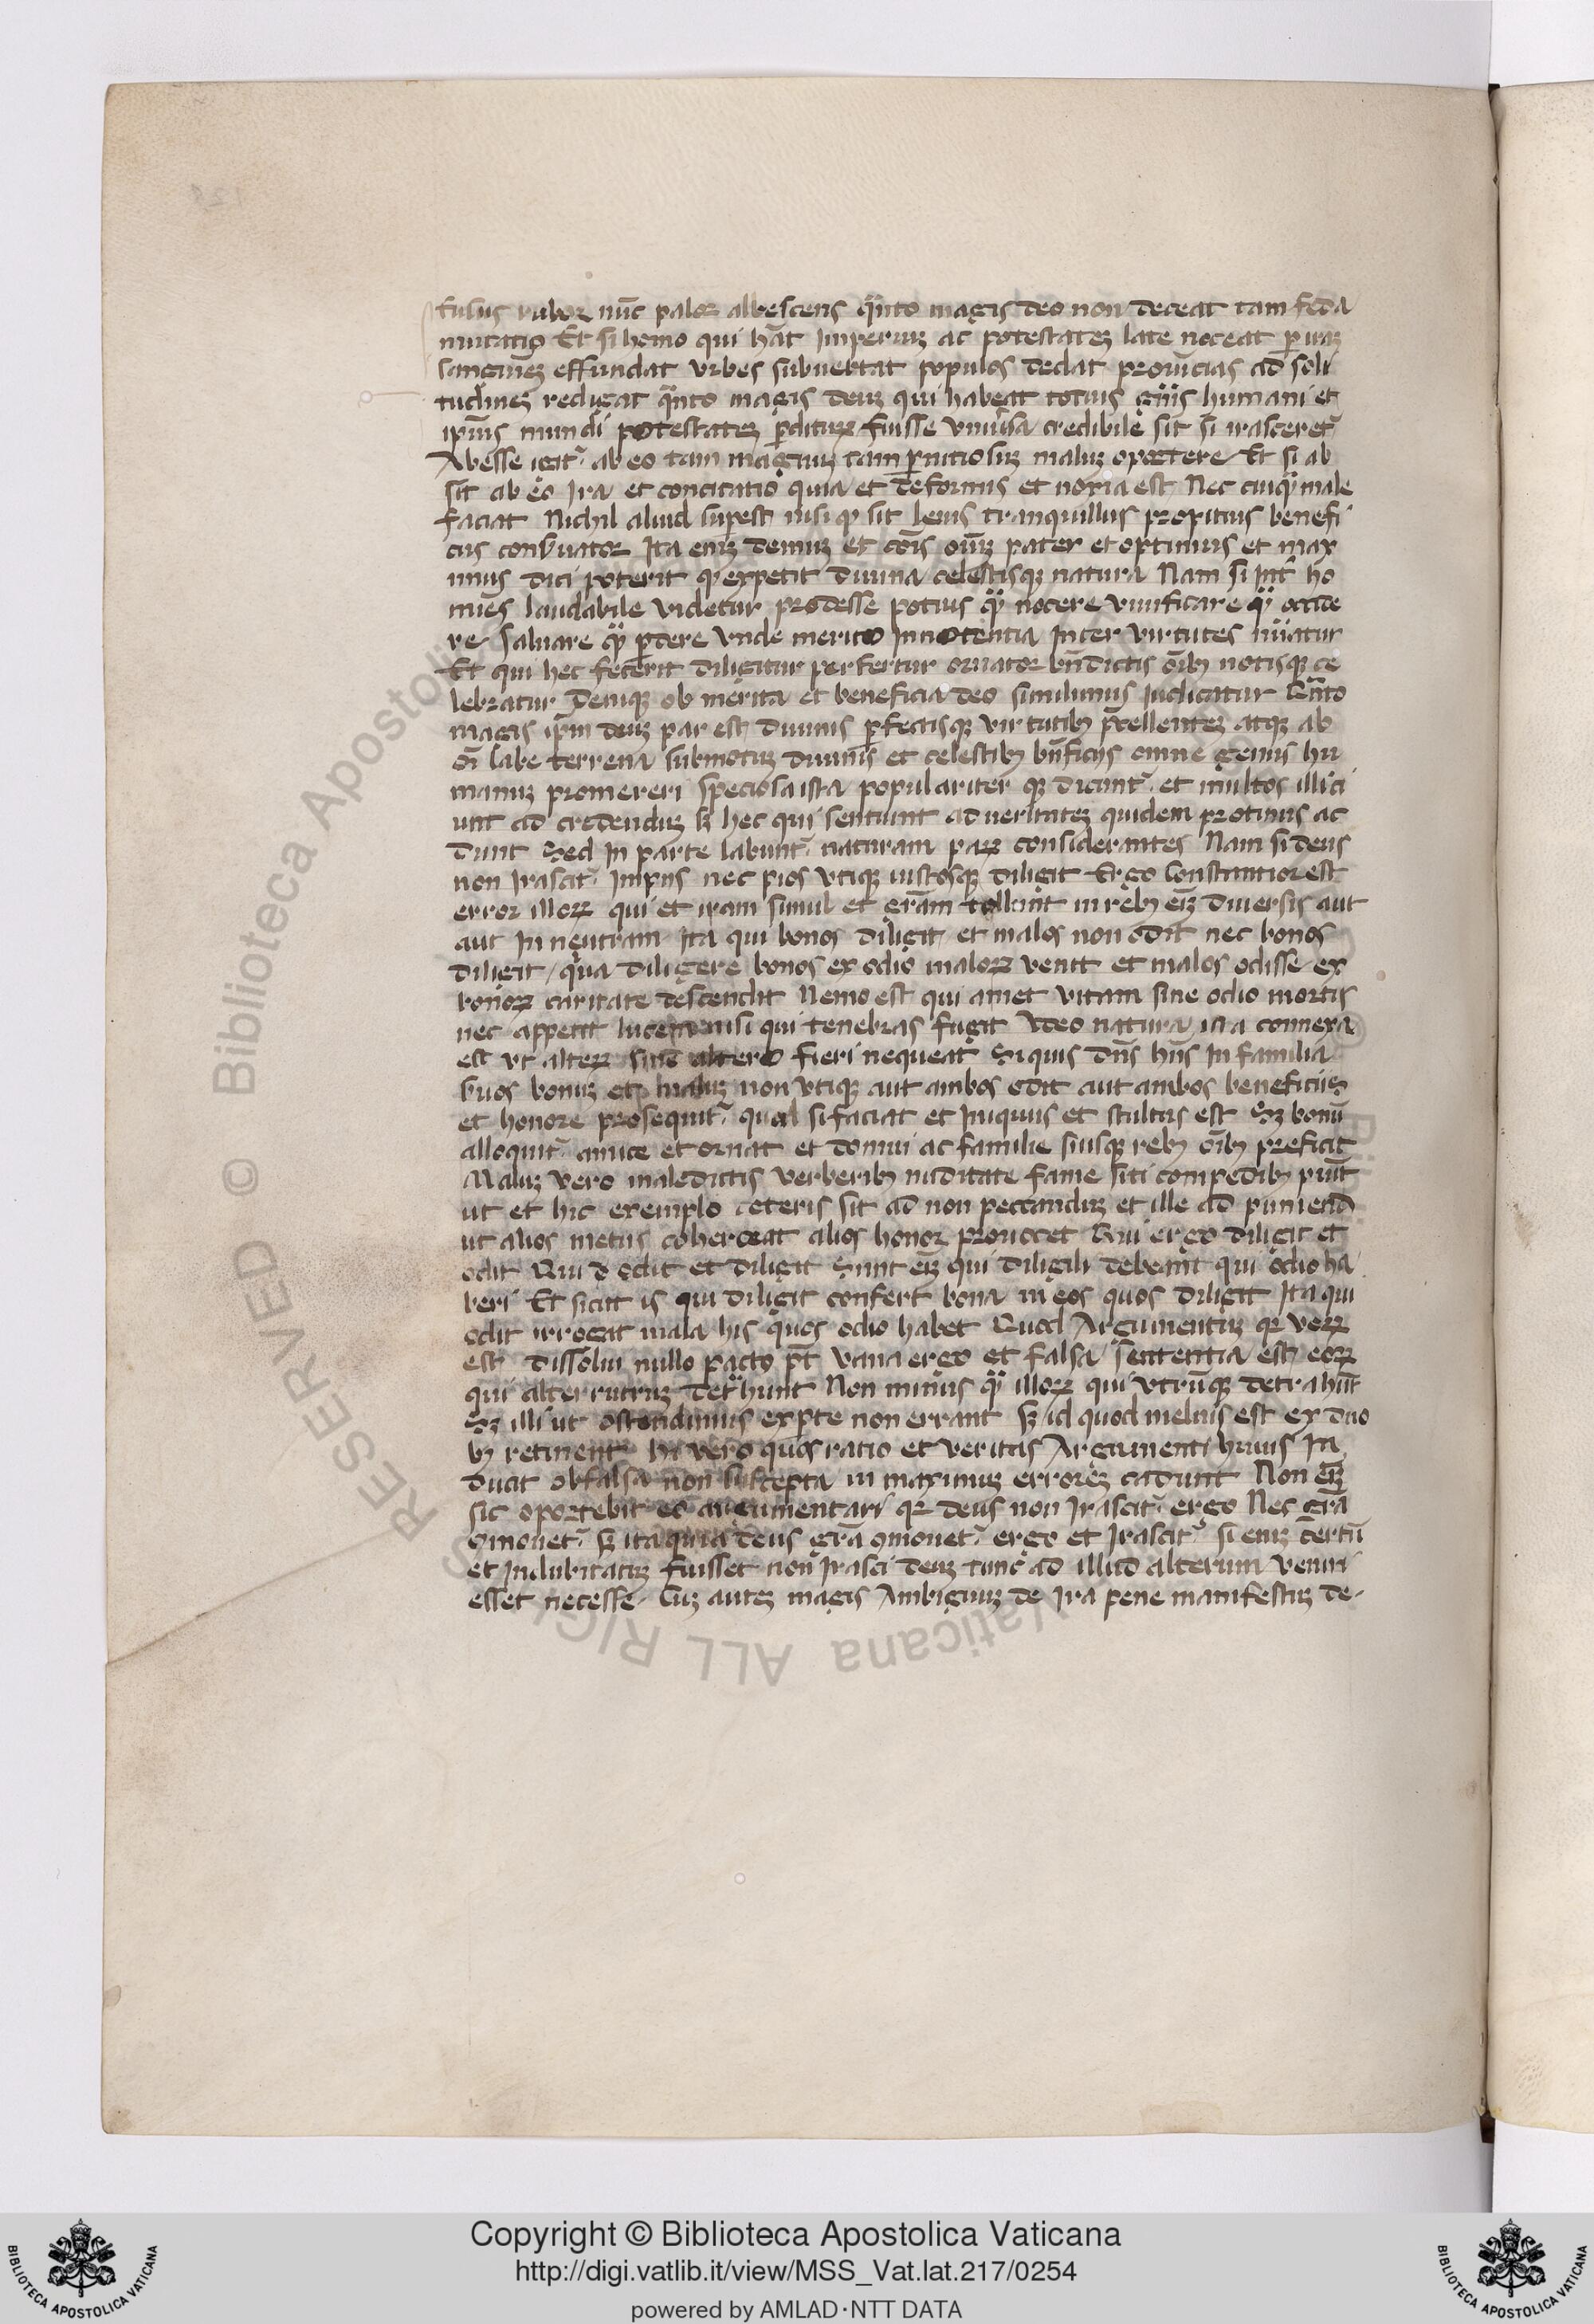 fusus rubor nūc palor albescens qͣnto magis deo non deceat tam feda
mutatio Et si homo qui hāt Imperiuꝫ ac potestateꝫ late noceat per iraꝫ
sanguineꝫ effundat vrbes subuertat populos dedat prouīcias ad soli
tudineꝫ redigat qͣnto magis deuꝫ qui habeat totius gn̄is humani et
ipīus mundi potestateꝫ ꝑditurꝫ fuisse vniūsa credibile sit si irasceret᷑
Abesse igit᷑ ab eo tam magnuꝫ tam ꝑnitiosuꝫ maluꝫ oportere Et si ab
sit ab eo Ira et concitatio quia et deformis et noxia est Nec cuiqͣ male
faciat Nichil aliud suꝑest nisi ꝙ sit lenis tranquillus propitius benefi
cus conẜuator Ita eniꝫ demuꝫ et cōis oīuꝫ pater et optimus et max
imus dici poterit ꝙ expetit diuina celestisqꝫ natura Nam si Int̄ ho
mines laudabile videtur prodesse potius qͣ nocere viuificare qͣ occide
re Saluare qͣ ꝑdere vnde merito Innocentia Inter virtutes nūatur
Et qui hec fecerit diligitur perfertur ornator bn̄dictis oībꝫ votisqꝫ ce
lebratur Deniqꝫ ob merita et beneficia deo simlimus Iudicatur Qͣnto
magis ipm̄ deuꝫ par est diuinis ꝑfectisqꝫ virtutibꝫ p̄cellenteꝫ atqꝫ ab
oī labe terrena submotuꝫ diuinis et celestibꝫ bn̄ficijs omne genus hu
manuꝫ promereri speciosa ista populariter qꝫ dicunt᷑ et multos illici
unt ad credenduꝫ sꝫ hec qui sentiunt ad veritateꝫ quidem protinus ac
dunt Sed In parte labunt᷑ naturam parꝫ considerantes Nam si deus
non Irascit᷑ Impijs nec pios vtiqꝫ iustosqꝫ diligit Ergo Constantior est
error illorꝫ qui et iram simul et grām tollunt in rebꝫ eīꝫ diuersis aut
aut In neutram Ita qui bonos diligit et malos non odit nec bonos
diligit qͥa diligere bonos ex odio malorꝫ venit et malos odisse ex
bonorꝫ caritate descendit Nemo est qui amet vitam sine odio mortis
nec appetit lucem nisi qui tenebras fugit Adeo natura ista connexa
est vt alterꝫ sine altero fieri nequeat Si quis dn̄s hn̄s In familia
ẜuos bonuꝫ et maluꝫ non vtiqꝫ aut ambos odit aut ambos beneficijs
et honore prosequit᷑ quod si faciat et Iniquus et stultus est Sꝫ bonū
alloquit᷑ amice et ornat et domui ac familie suisqꝫ rebꝫ oībꝫ preficit
Maluꝫ vero maledictis verberibꝫ nuditate fame siti compedibꝫ punit
ut et hic exemplo ceteris sit ad non peccanduꝫ et ille ad puniend
ut alios metus coherceat alios honor prouocet Qui ergo diligit et
odit Qui d odit et diligit Sunt eīꝫ qui diligili debeant qui odio ha
beri Et sicut is qui diligit confert bona in eos quos diligit Ita qui
odit irrogat mala his quos odio habet Quod Argumentuꝫ qꝛ verꝫ
est dissolui nullo pacto pt̄ vana ergo et falsa sententia est eorꝫ
qui alterrutruꝫ det̾hunt Non minus qͣ illorꝫ qui vtrūqꝫ detrahūt
Sꝫ illi ut ostendimus ex ꝑte non errant sꝫ id quod melius est ex duo
bꝫ retinent hi vero quos ratio et veritas Argumenti huius In
ducat ob falsa non suscepta in maximuꝫ erroreꝫ cadunt Non eīꝫ
sic oportebit eo argumentari qꝛ deus non Irascit᷑ ergo Nec grā
ꝯmouet᷑ sꝫ ita quia deus grā ꝯmouet᷑ ergo et Irascit᷑ si eniꝫ certū
et Indubitatuꝫ fuisset non Irasci deuꝫ tunc ad illud alterum veniri
esset necesse Cuꝫ auteꝫ magis Ambiguuꝫ de Ira pene manifestuꝫ de
RESERVED © Biblioteca Apostolica Vaticana ALL RIGHTS
Copyright © Biblioteca Apostolica Vaticana
http://digi.vatlib.it/view/MSS_Vat.lat.217/0254
powered by AMLAD·NTT DATA
BIBLIOTECA APOSTOLICA VATICANA
BIBLIOTECA APOSTOLICA VATICANA